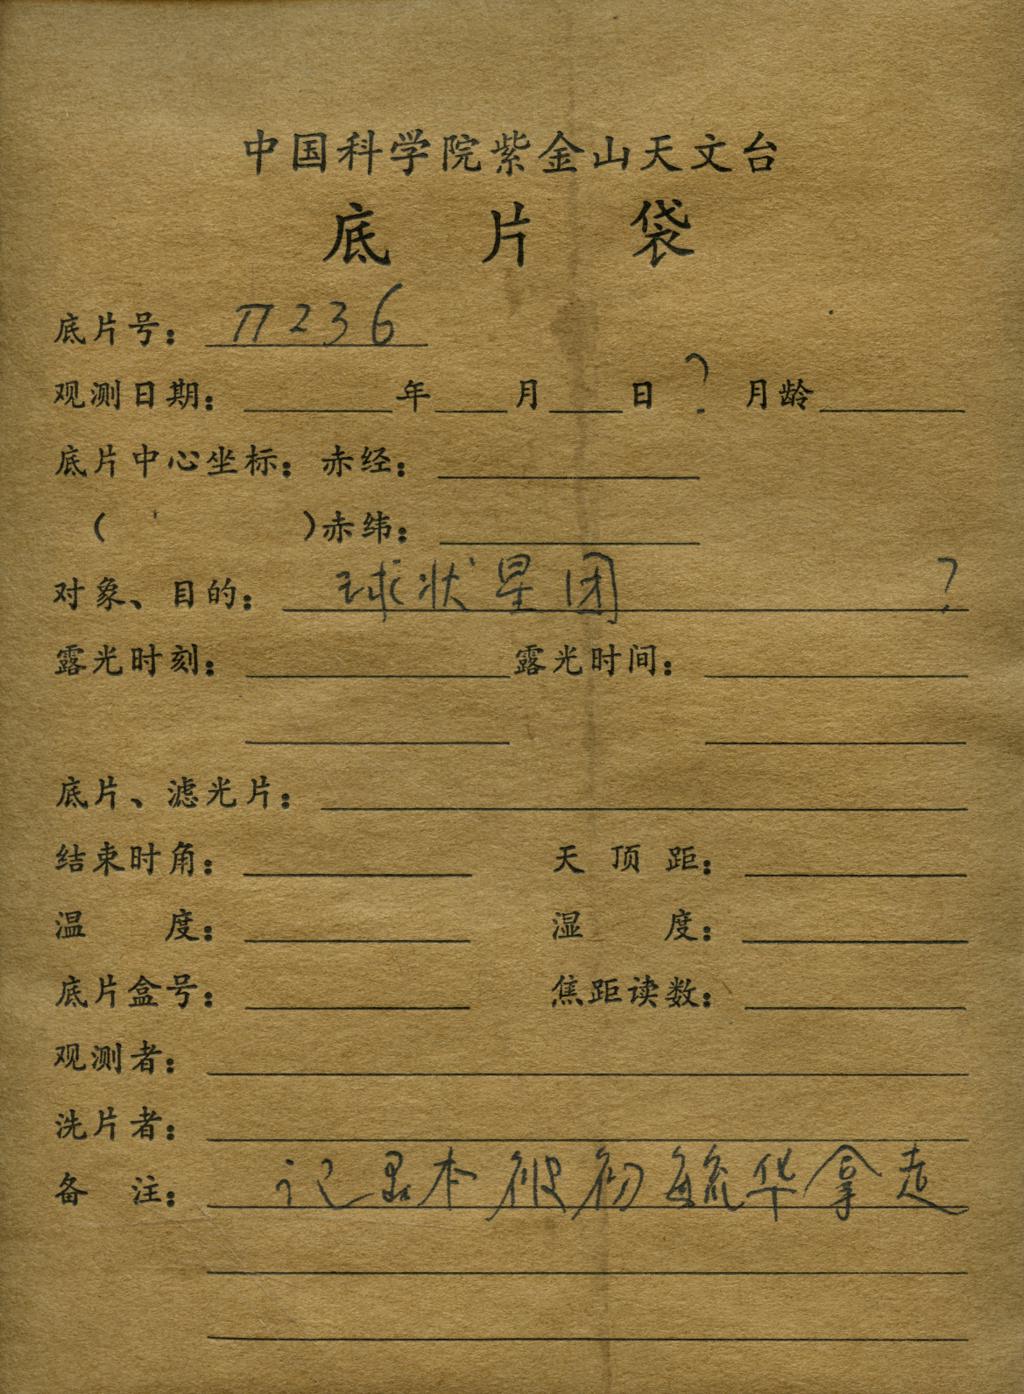 中国科学院紫金山天文台
底 片 袋
底片号: π236
观测日期: 年 月 日 ? 月龄
底片中心坐标: 赤经:
( )赤纬:
对象、目的: 球状星团 ?
露光时刻: 露光时间:
底片、滤光片:
结束时角: 天 顶 距:
温 度: 湿 度:
底片盒号: 焦距读数:
观测者:
洗片者:
备 注: 记录本被初毓华拿走